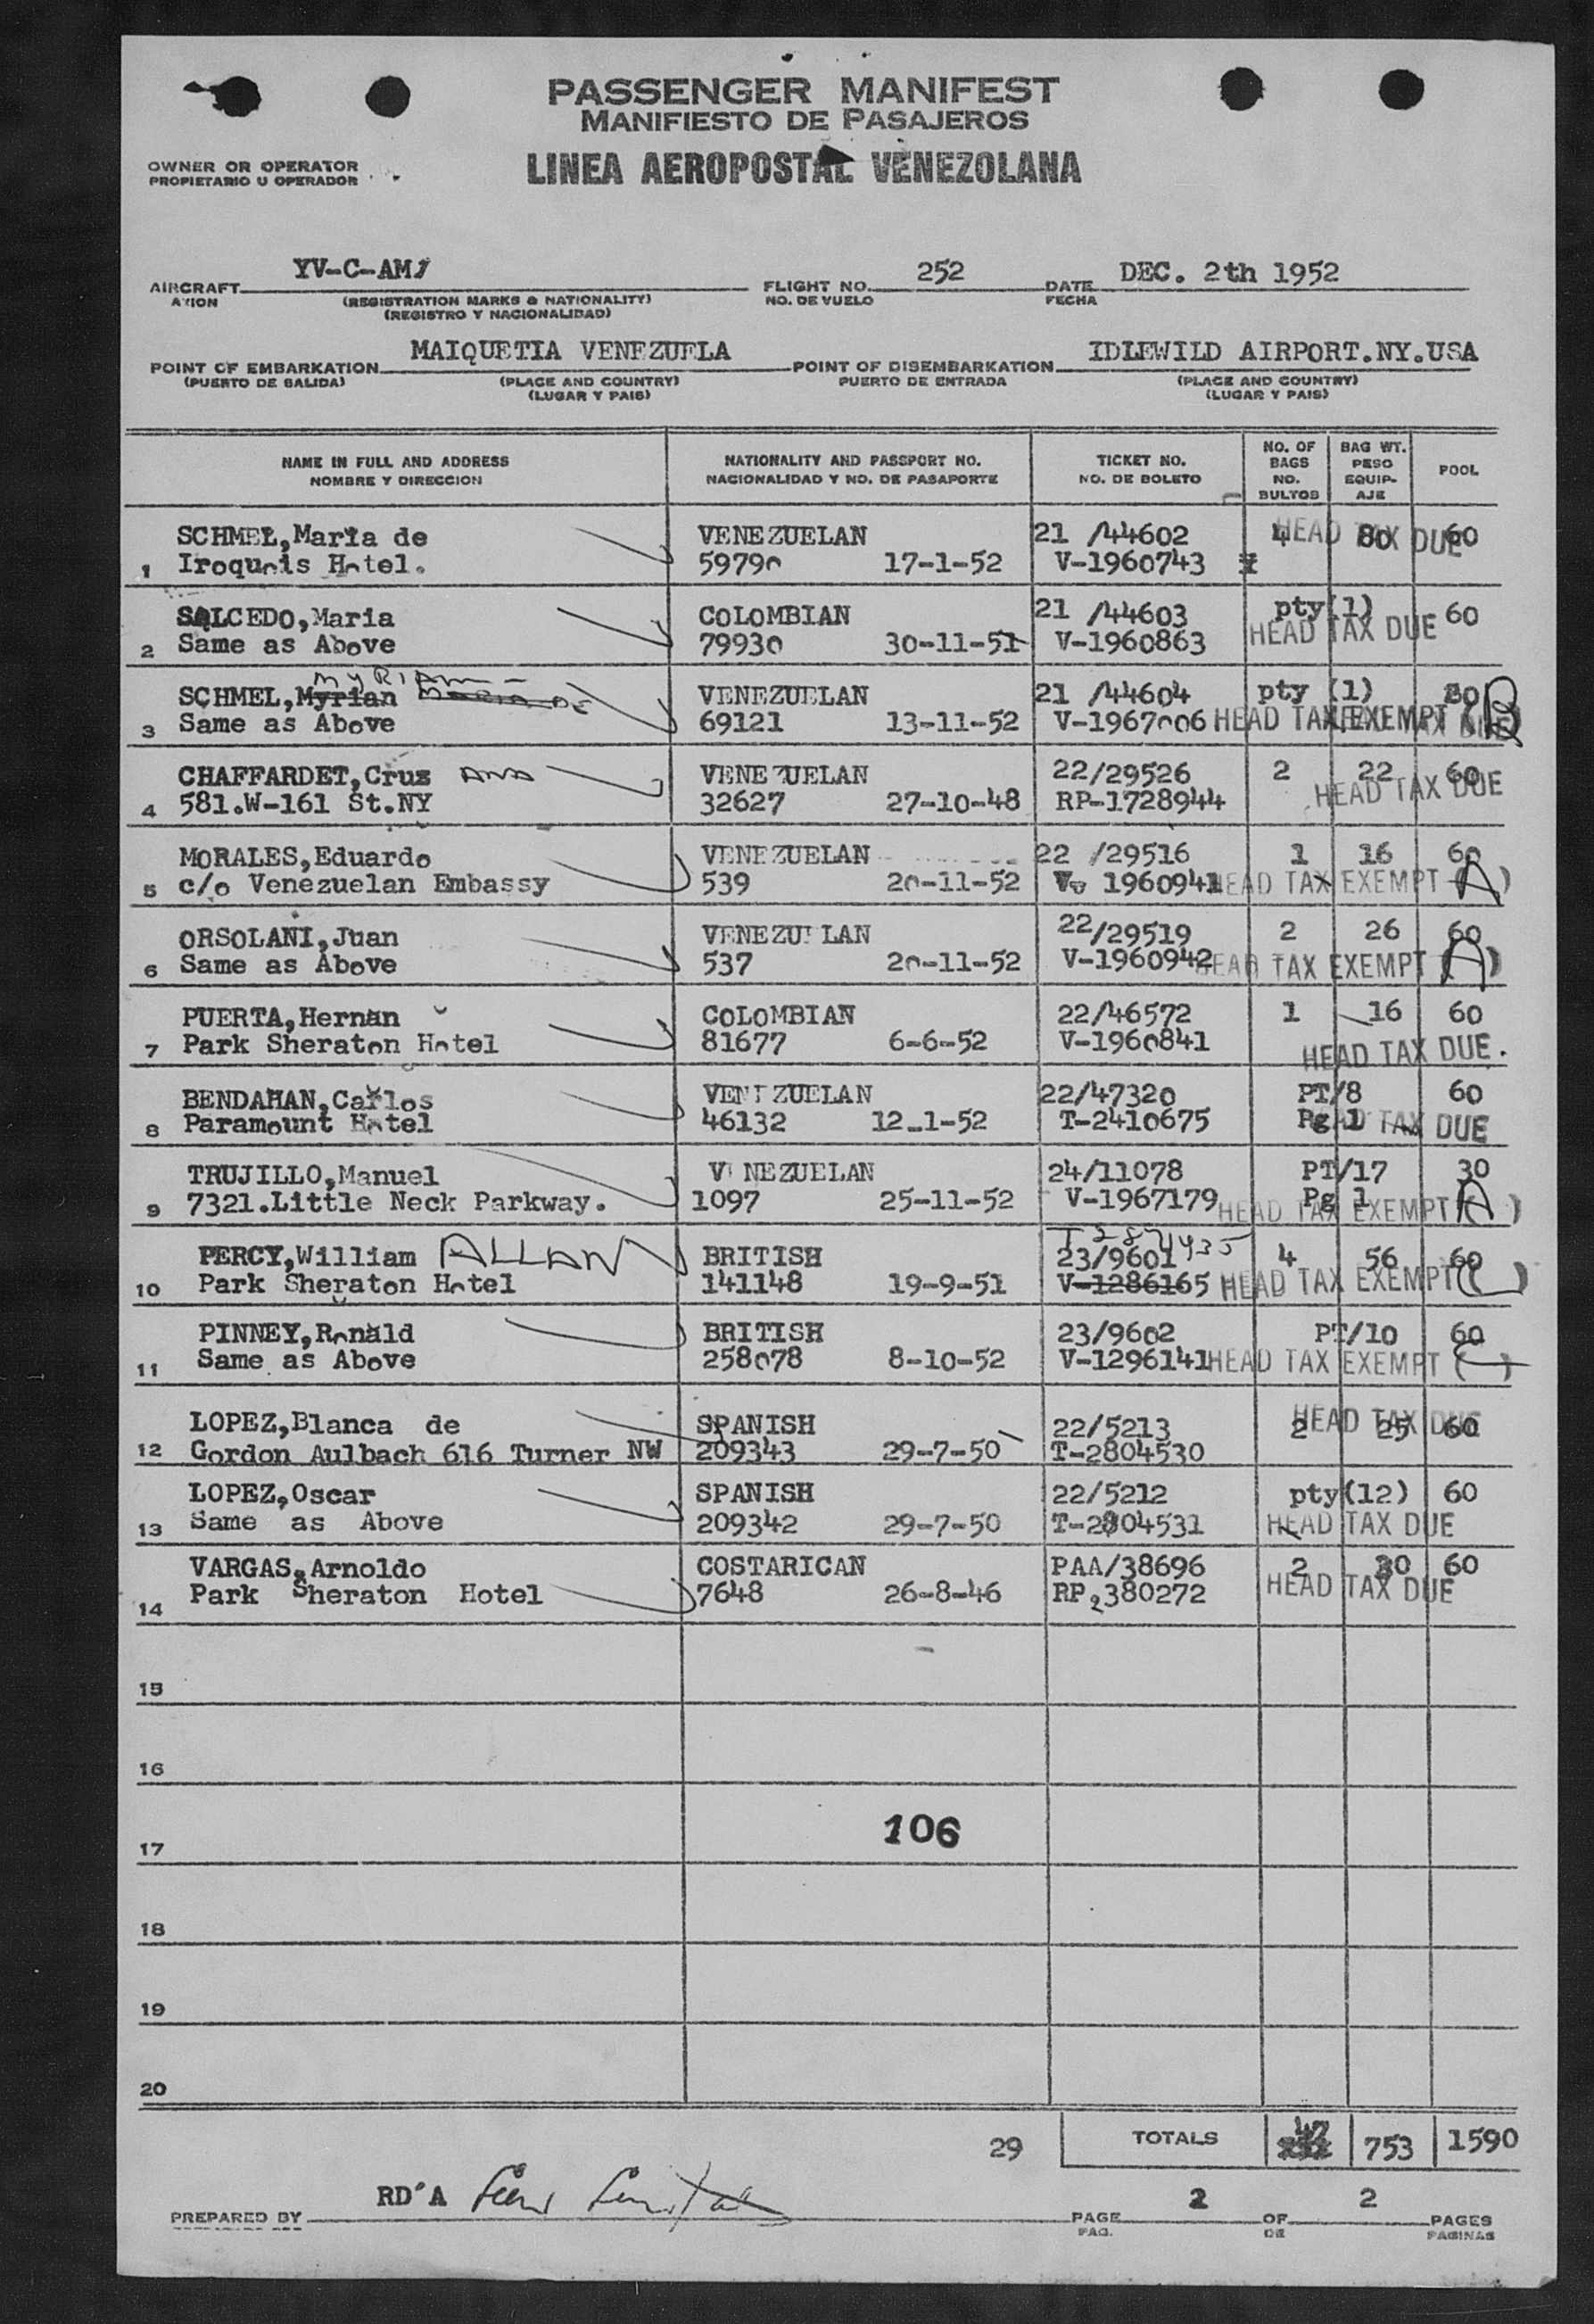 PASSENGER MANIFEST
MANIFIESTO DE PASAJEROS
OWNER OR OPERATOR
PROPIETARIO U OPERADOR
LINEA AEROPOSTAL VENEZOLANA
AIRCRAFT YV-C-AMJ FLIGHT NO. 252 DATE DEC. 2th 1952
AVION (REGISTRATION MARKS & NATIONALITY) NO. DE VUELO FECHA
(REGISTRO Y NACIONALIDAD)
POINT OF EMBARKATION MAIQUETIA VENEZUELA POINT OF DISEMBARKATION IDLEWILD AIRPORT.NY.USA
(PUERTO DE SALIDA) (PLACE AND COUNTRY) PUERTO DE ENTRADA (PLACE AND COUNTRY)
(LUGAR Y PAIS) (LUGAR Y PAIS)
NAME IN FULL AND ADDRESS NATIONALITY AND PASSPORT NO. TICKET NO. NO. OF BAGS BAG WT. POOL
NOMBRE Y DIRECCION NACIONALIDAD Y NO. DE PASAPORTE NO. DE BOLETO NO. BULTOS PESO EQUIP-AJE
SCHMEL,Maria de VENEZUELAN 21 /44602 4 80 60 HEAD TAX DUE
1 Iroquois Hotel. 59790 17-1-52 V-1960743
SALCEDO,Maria COLOMBIAN 21 /44603 pty(1) 60
2 Same as Above 79930 30-11-51 V-1960863 HEAD TAX DUE
MYRIAM
SCHMEL,Myrian MARIA DE VENEZUELAN 21 /44604 pty (1) 30
3 Same as Above 69121 13-11-52 V-1967006 HEAD TAX EXEMPT (B)
CHAFFARDET,Cruz ANA VENEZUELAN 22/29526 2 22 60
4 581.W-161 St.NY 32627 27-10-48 RP-1728944 HEAD TAX DUE
MORALES,Eduardo VENEZUELAN 22 /29516 1 16 60
5 c/o Venezuelan Embassy 539 20-11-52 V- 1960941 HEAD TAX EXEMPT (A)
ORSOLANI,Juan VENEZUELAN 22/29519 2 26 60
6 Same as Above 537 20-11-52 V-1960942 HEAD TAX EXEMPT (A)
PUERTA,Hernan COLOMBIAN 22/46572 1 16 60
7 Park Sheraton Hotel 81677 6-6-52 V-1960841 HEAD TAX DUE.
BENDAHAN,Carlos VENEZUELAN 22/47320 PT/8 60
8 Paramount Hotel 46132 12-1-52 T-2410675 Pg 1 HEAD TAX DUE
TRUJILLO,Manuel VENEZUELAN 24/11078 PT/17 30
9 7321.Little Neck Parkway. 1097 25-11-52 V-1967179 Pg 1 HEAD TAX EXEMPT (A)
T 287435
PERCY,William ALLAN BRITISH 23/9601 4 56 60
10 Park Sheraton Hotel 141148 19-9-51 V-1286165 HEAD TAX EXEMPT ( )
PINNEY,Ronald BRITISH 23/9602 PT/10 60
11 Same as Above 258078 8-10-52 V-1296141 HEAD TAX EXEMPT ( )
LOPEZ,Blanca de SPANISH 22/5213 2 25 60 HEAD TAX DUE
12 Gordon Aulbach 616 Turner NW 209343 29-7-50 T-2804530
LOPEZ,Oscar SPANISH 22/5212 pty(12) 60
13 Same as Above 209342 29-7-50 T-2804531 HEAD TAX DUE
VARGAS,Arnoldo COSTARICAN PAA/38696 2 30 60
14 Park Sheraton Hotel 7648 26-8-46 RP 2380272 HEAD TAX DUE
15
16
17 106
18
19
20
29 TOTALS 47 753 1590
PREPARED BY RD'A PAGE 2 OF 2 PAGES
PAG. DE PAGINAS